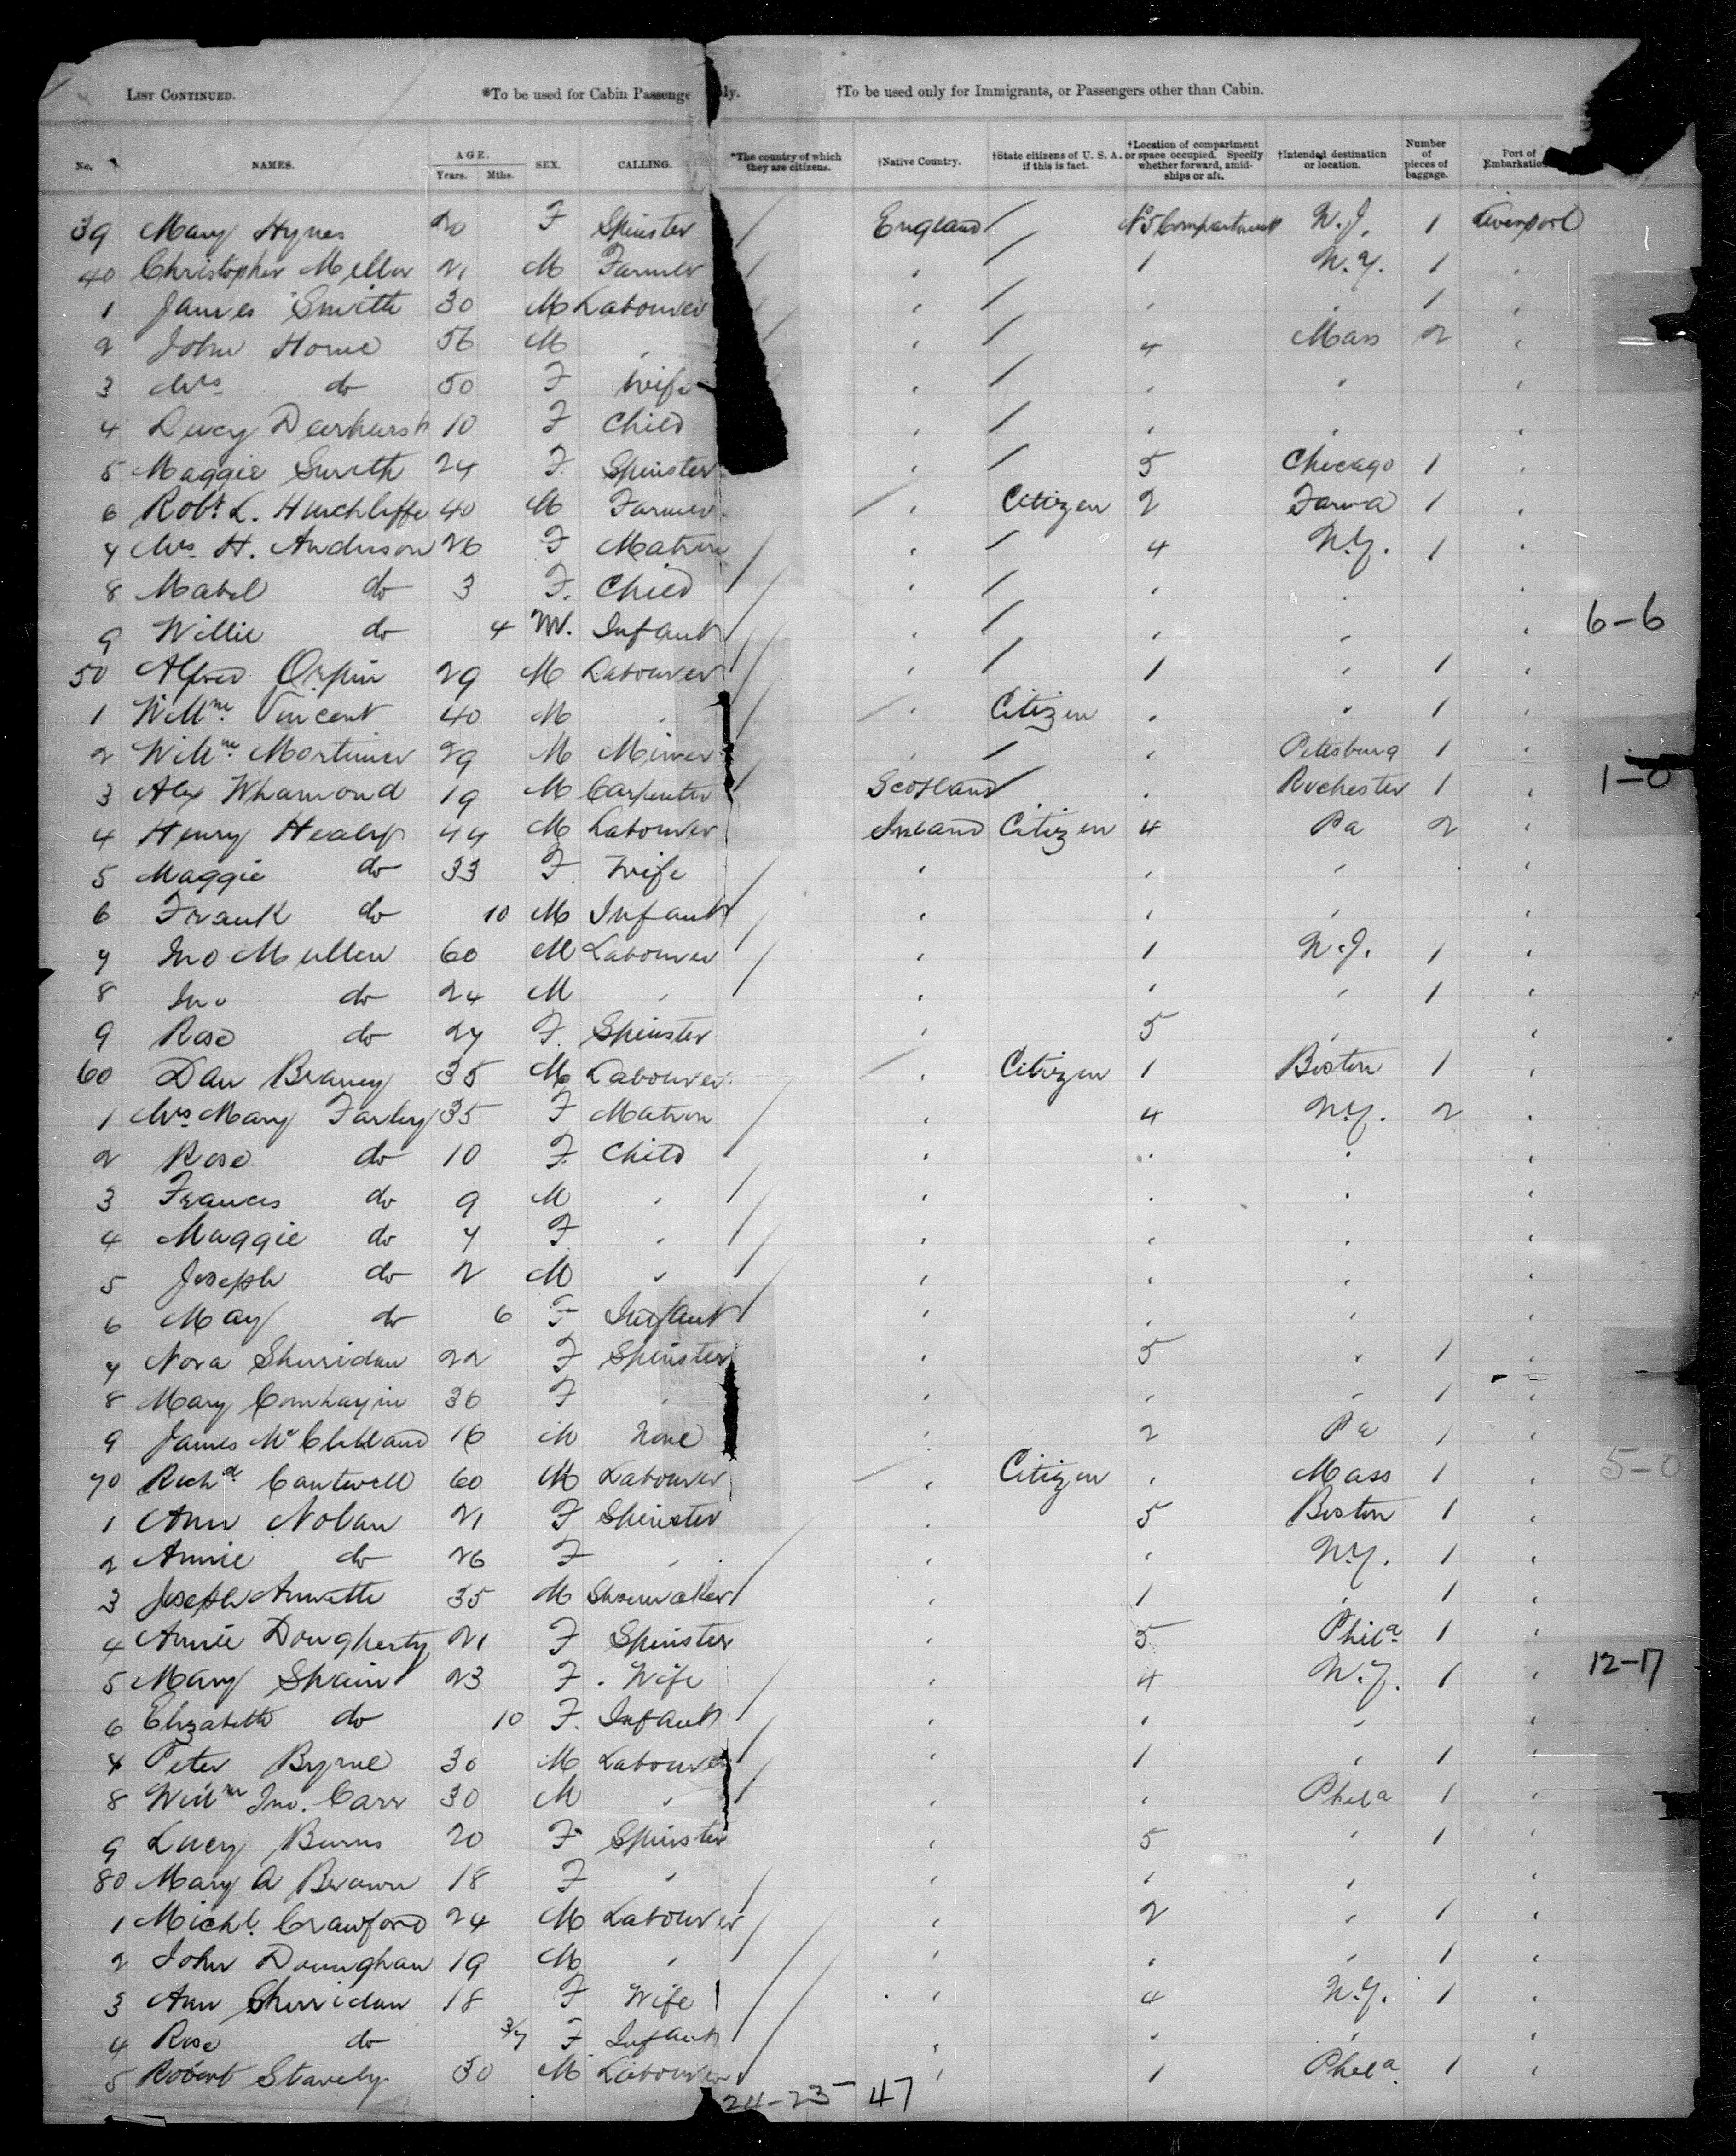 LIST CONTINUED. *To be used for Cabin Passenge ly. †To be used only for Immigrants, or Passengers other than Cabin.
No. NAMES. AGE. Years. Mths. SEX. CALLING. *The country of which they are citizens. †Native Country. †State citizens of U. S. A. if this is fact. †Location of compartment or space occupied. Specify whether forward, amidships or aft. †Intended destination or location. Number of pieces of baggage. Port of Embarkation
39 Mary Hynes 20 F Spinster / England / No 5 Compartment N.J. 1 Liverpool
40 Christopher 21 M Farmer / " / 1 N.Y. 1 "
1 James Smith 30 M Labourer " / " " 1 "
2 John Horne 56 M " " / 4 Mass 2 "
3 Mrs do 50 F Wife " / " " "
4 Lucy 10 F Child " / " " "
5 Maggie Smith 24 F. Spinster " / 5 Chicago 1 "
6 Robt. L. Hinchliffe 40 M Farmer / " Citizen 2 1 "
7 Mrs H. Anderson 26 F Matron / " / 4 N.Y. 1 "
8 Mabel do 3 F. Child / " / " "
9 Willie do 4 M. Infant / " / " " "
6-6
50 Alfred Orpin 29 M Labourer / " / 1 " 1 "
1 Willm. Vincent 40 M " / " Citizen " " 1 "
2 Willm. Mortimer 29 M Miner " / " Pittsburg 1 "
3 Alex Whamond 19 M Carpenter Scotland / " Rochester 1 "
1-0
4 Henry Healy 44 M Labourer Ireland Citizen 4 Pa 2 "
5 Maggie do 33 F. Wife / " " " "
6 Frank do 10 M Infant / " " " "
7 Jno Mullen 60 M Labourer / " 1 N.J. 1 "
8 Jno do 24 M " " " " 1 "
9 Rose do 27 F. Spinster " 5 " "
60 Dan 35 M Labourer / " Citizen 1 Boston 1 "
1 Mrs Mary Farley 35 F Matron / " 4 N.Y. 2 "
2 Rose do 10 F. Child " " " "
3 Frances do 9 M " / " " " "
4 Maggie do 7 F " / " " " "
5 Joseph do 2 M " / " " " "
6 May do 6 F Infant / " " " "
7 Nora Sheridan 22 F Spinster " 5 " 1 "
8 Mary 36 F " " " " 1 "
9 James McClelland 16 M None " 2 Pa 1 "
70 Richd. Cantwell 60 M Labourer / " Citizen " Mass 1 "
5-0
1 Ann Nolan 21 F Spinster " 5 Boston 1 "
2 Annie do 26 F " / " " N.Y. 1 "
3 Joseph 35 M Shoemaker / " 1 " 1 "
4 Annie Dougherty 21 F Spinster " 5 Phila. 1 "
5 Mary Spain 23 F. Wife / " 4 N.Y. 1 "
12-17
6 Elizabeth do 10 F. Infant / " " " "
7 Peter Byrne 30 M Labourer / " 1 " 1 "
8 Willm Jno. Carr 30 M " " " Phila 1 "
9 Lucy Burns 20 F Spinster " 5 " 1 "
80 Mary A Brown 18 F " / " " " "
1 Michl. Crawford 24 M Labourer / " 2 " 1 "
2 John 19 M " / " " " 1 "
3 Ann Sherridan 18 F Wife / " 4 N.Y. 1 "
4 Rose do F Infant / " " " "
5 Robert Stavely 30 M Labourer " 1 Phila. 1 "
24-23 47